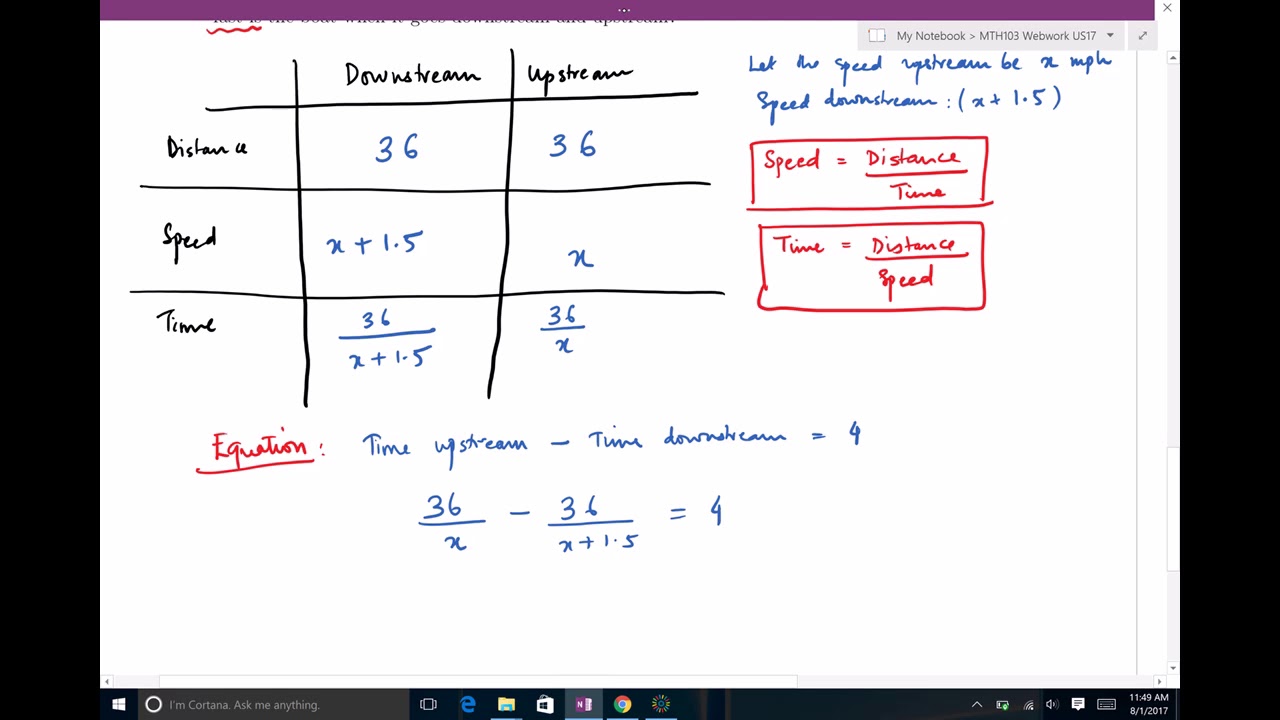 fast is the boat when it goes downstream and upstream?
My Notebook > MTH103 Webwork US17
Downstream Upstream
Let the speed upstream be x mph
Speed downstream : (x + 1.5)
Distance 36 36
Speed = Distance / Time
Speed x + 1.5 x
Time = Distance / Speed
Time 36 / x + 1.5 36 / x
Equation : Time upstream – Time downstream = 4
36 / x – 36 / x + 1.5 = 4
I'm Cortana. Ask me anything.
11:49 AM
8/1/2017